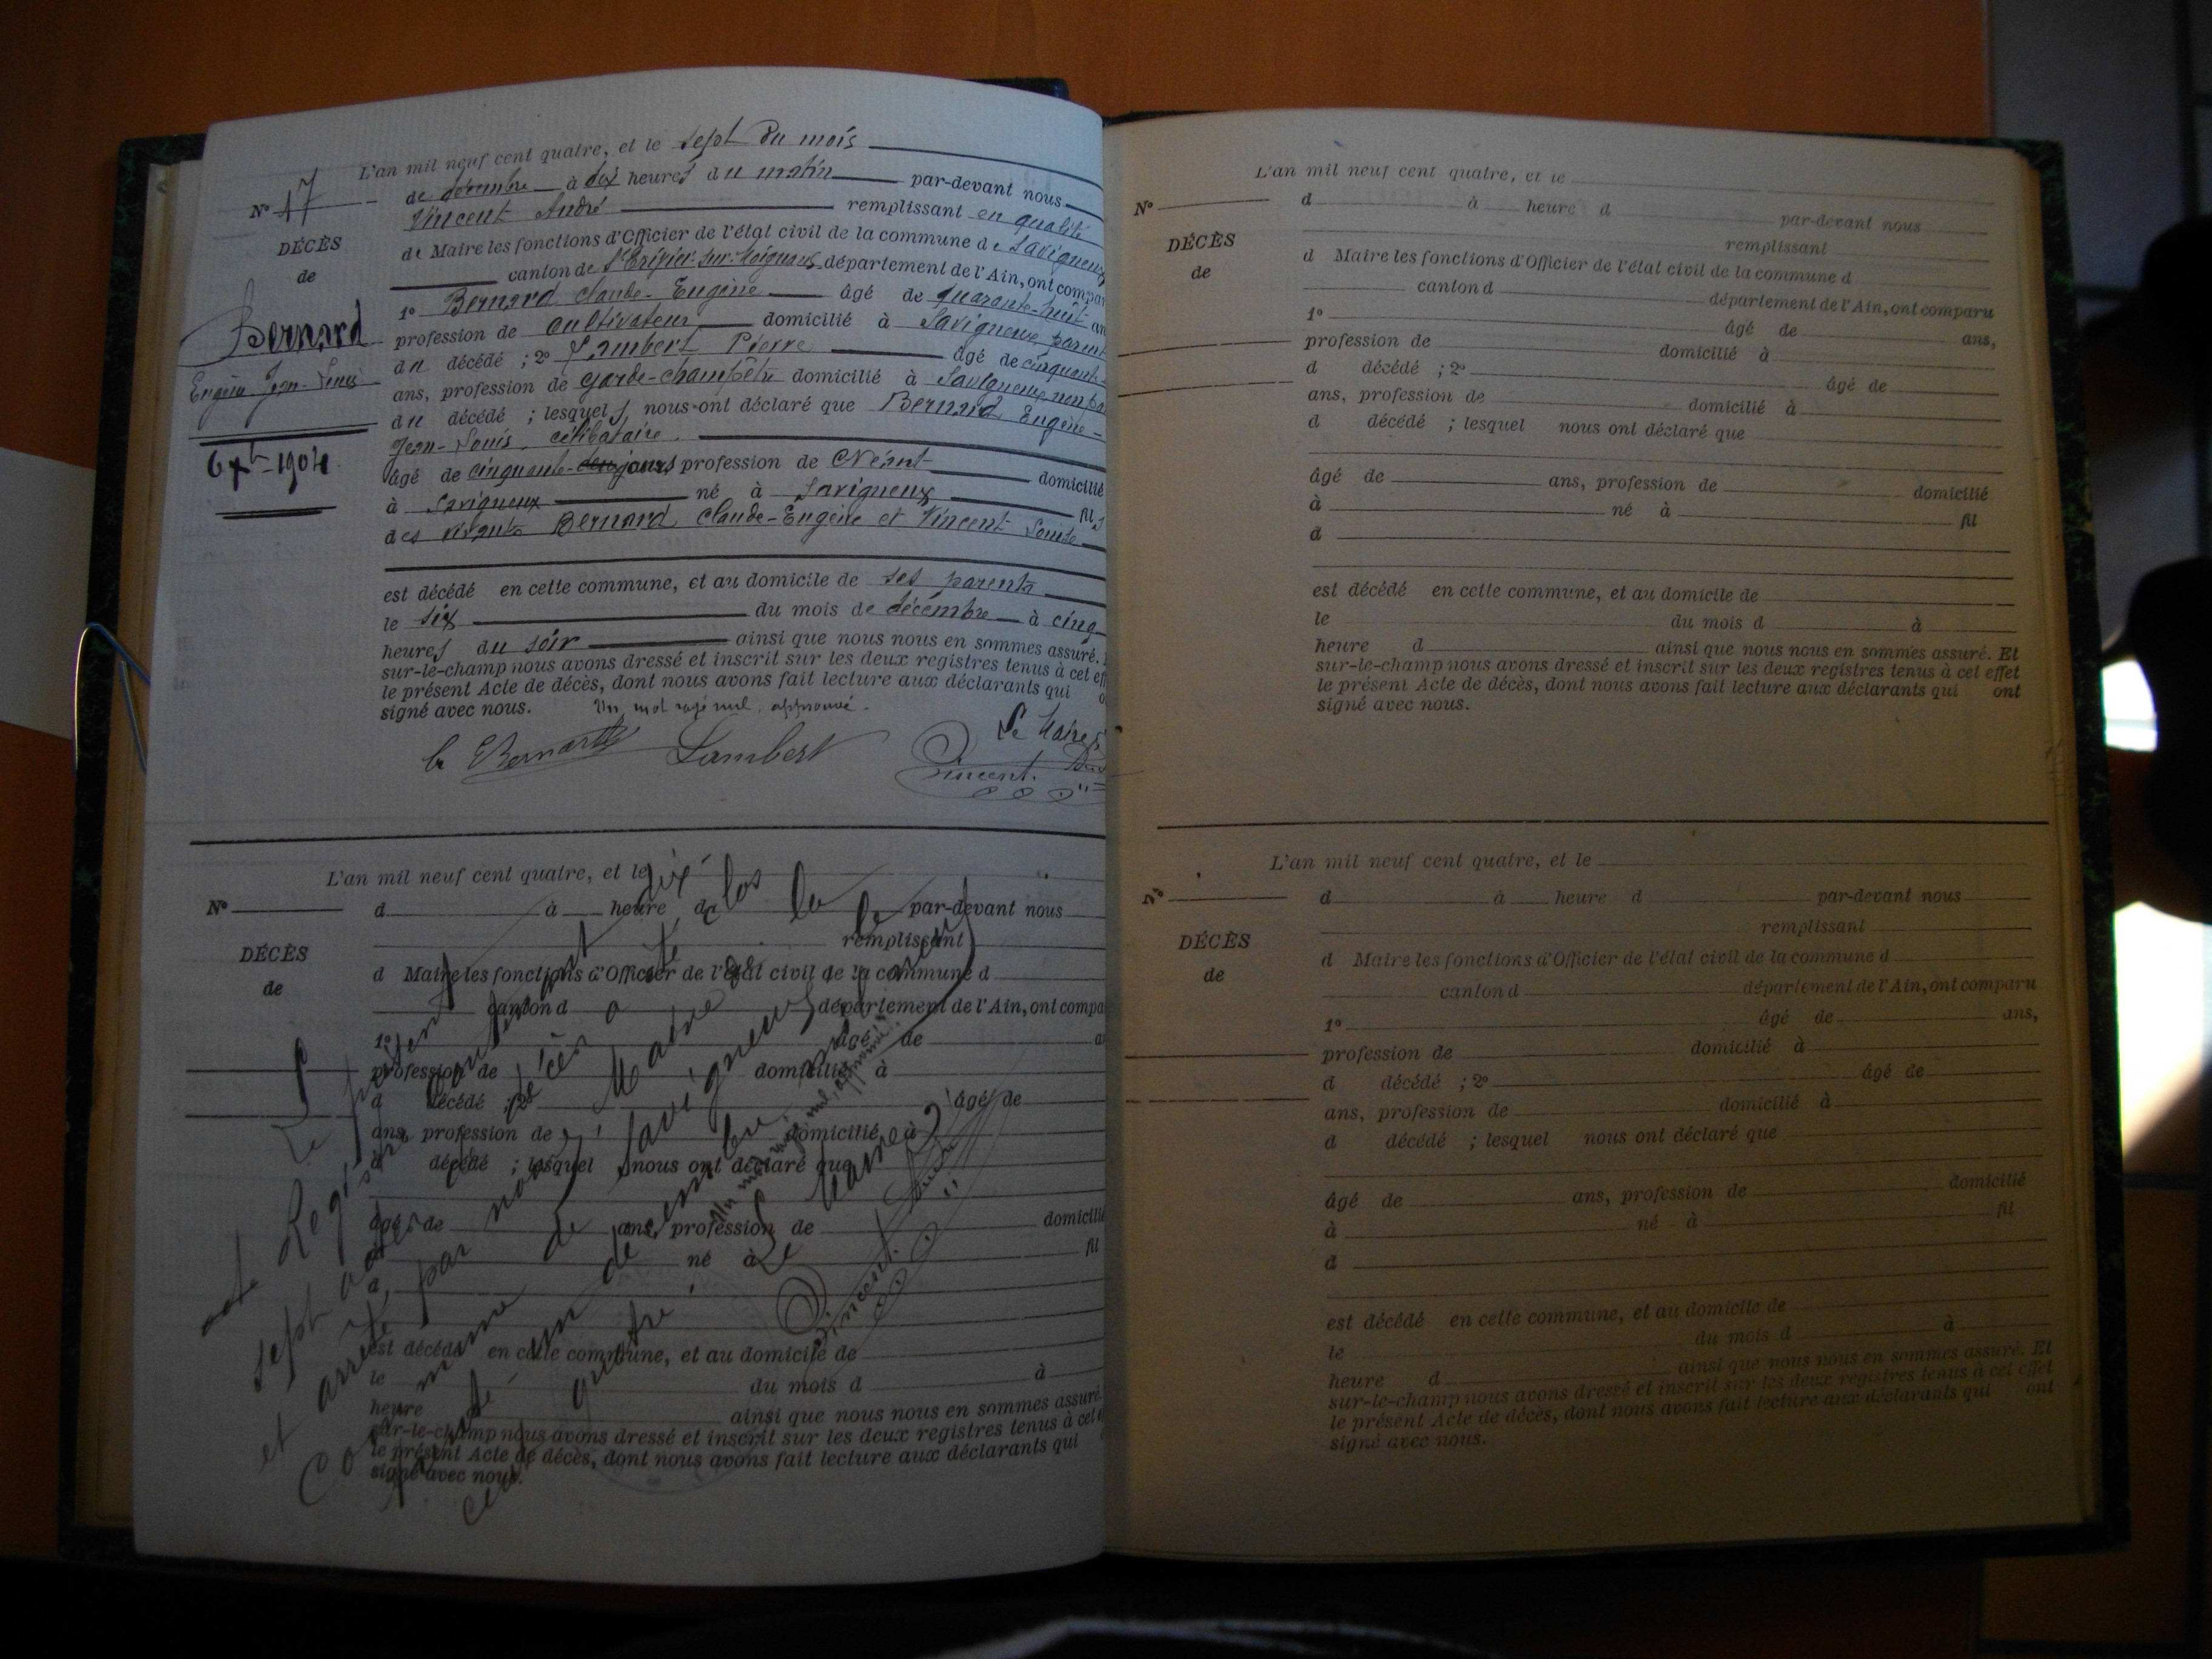 L'an mil neuf cent quatre, et le sept du mois
N° 17
de décembre à dix heures du matin par-devant nous
Vincent André remplissant en qualité
DÉCÈS
de
de Maire les fonctions d'Officier de l'état civil de la commune de Savigneux
canton de St Trivier-sur-Moignans département de l'Ain, ont compar
1° Bernard Claude-Eugène âgé de quarante-huit an
Bernard
Eugène Jean-Louis
profession de cultivateur domicilié à Savigneux, parent
du décédé ; 2° Lambert Pierre âgé de cinquante-
ans, profession de garde-champêtre domicilié à Savigneux, non pa
du décédé ; lesquels nous ont déclaré que Bernard Eugène-
Jean-Louis, célibataire.
6 Xbre 1904
âgé de cinquante-deux jours profession de Néant domicilié
à Savigneux né à Savigneux fils
des vivants Bernard Claude-Eugène et Vincent Louise
est décédé en cette commune, et au domicile de ses parents
le six du mois de décembre à cinq
heures du soir ainsi que nous nous en sommes assuré.
sur-le-champ nous avons dressé et inscrit sur les deux registres tenus à cet eff
le présent Acte de décès, dont nous avons fait lecture aux déclarants qui o
signé avec nous. Un mot rayé nul, approuvé.
Bernard Lambert Le Maire,
Vincent
L'an mil neuf cent quatre, et le
N°
d à heure d par-devant nous
remplissant
DÉCÈS
de
d Maire les fonctions d'Officier de l'état civil de la commune d
canton d département de l'Ain, ont compa
1° âgé de a
profession de domicilié à
d décédé ; 2° âgé de
ans, profession de domicilié à
d décédé ; lesquel nous ont déclaré que
âgé de ans, profession de domicilié
à né à fil
d
est décédé en cette commune, et au domicile de
le du mois d à
heure d ainsi que nous nous en sommes assuré
sur-le-champ nous avons dressé et inscrit sur les deux registres tenus à cet
le présent Acte de décès, dont nous avons fait lecture aux déclarants qui
signé avec nous.
Le présent
Registre contenant
sept actes de décès a été clos
et arrêté par nous Maire de la
Commune de Savigneux le
décembre
quatre
Un mot rayé nul, approuvé.
Le Maire,
Vincent André
L'an mil neuf cent quatre, et le
N°
d à heure d par-devant nous
remplissant
DÉCÈS
de
d Maire les fonctions d'Officier de l'état civil de la commune d
canton d département de l'Ain, ont comparu
1° âgé de ans,
profession de domicilié à
d décédé ; 2° âgé de
ans, profession de domicilié à
d décédé ; lesquel nous ont déclaré que
âgé de ans, profession de domicilié
à né à fil
d
est décédé en cette commune, et au domicile de
le du mois d à
heure d ainsi que nous nous en sommes assuré. Et
sur-le-champ nous avons dressé et inscrit sur les deux registres tenus à cet effet
le présent Acte de décès, dont nous avons fait lecture aux déclarants qui ont
signé avec nous.
L'an mil neuf cent quatre, et le
N°
d à heure d par-devant nous
remplissant
DÉCÈS
de
d Maire les fonctions d'Officier de l'état civil de la commune d
canton d département de l'Ain, ont comparu
1° âgé de ans,
profession de domicilié à
d décédé ; 2° âgé de
ans, profession de domicilié à
d décédé ; lesquel nous ont déclaré que
âgé de ans, profession de domicilié
à né à fil
d
est décédé en cette commune, et au domicile de
le du mois d à
heure d ainsi que nous nous en sommes assuré. Et
sur-le-champ nous avons dressé et inscrit sur les deux registres tenus à cet effet
le présent Acte de décès, dont nous avons fait lecture aux déclarants qui ont
signé avec nous.